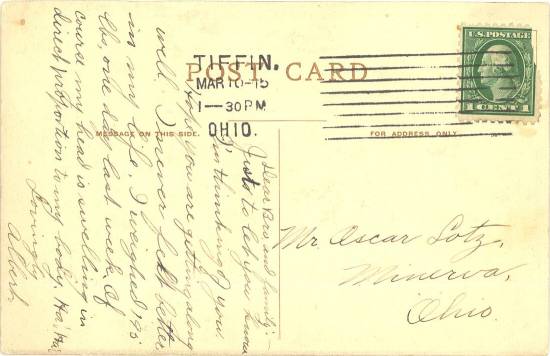 TIFFIN,
MAR 10-15
1—30PM
OHIO.
U.S. POSTAGE
1 CENT 1
POST CARD
MESSAGE ON THIS SIDE.
FOR ADDRESS ONLY.
Dear Bro and family:—
Just to let you know
I'm thinking of you.
Hope you are getting along
well. I never felt better
in my life. I weighed 195
lbs. one day last week. Of
course my head is swelling in
direct proportion to my body. Ha! Ha!
Lovingly
Albert
Mr. Oscar Lotz,
Minerva,
Ohio.